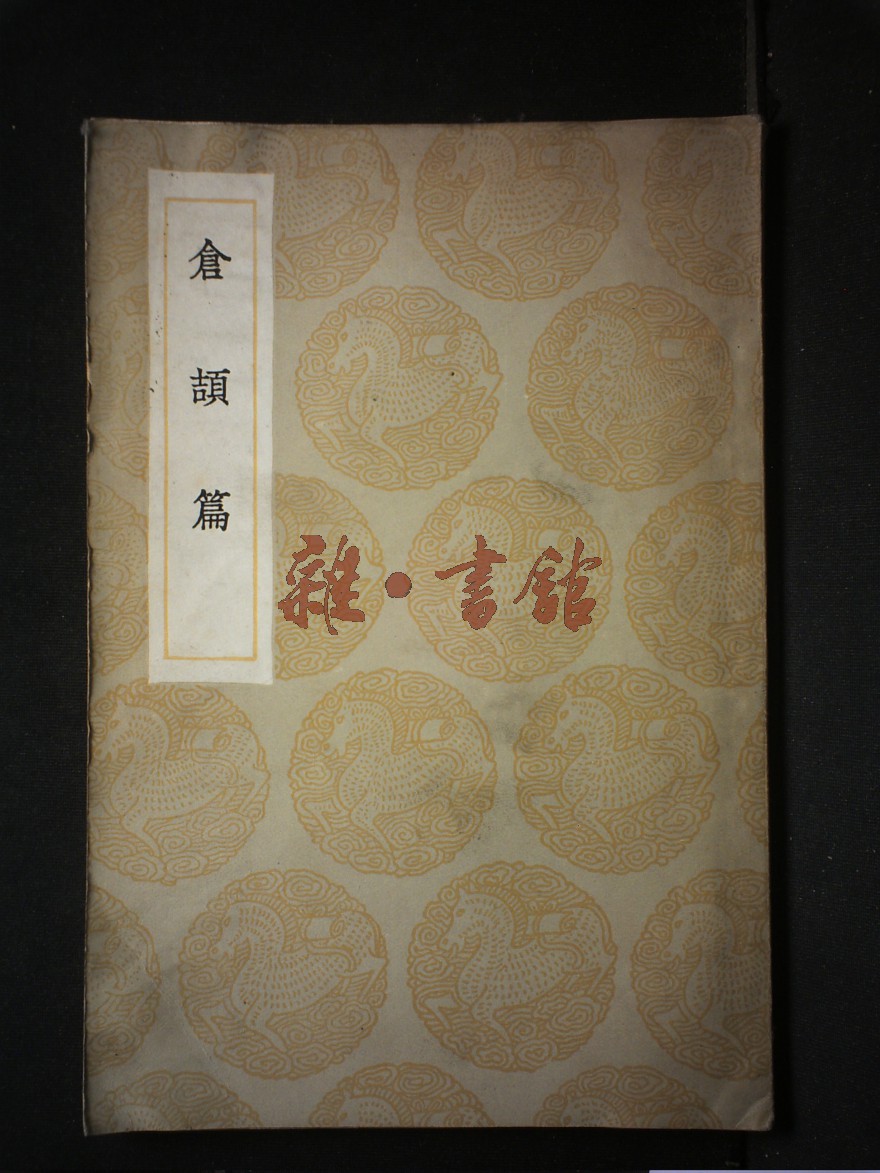 倉頡篇
雜·書館